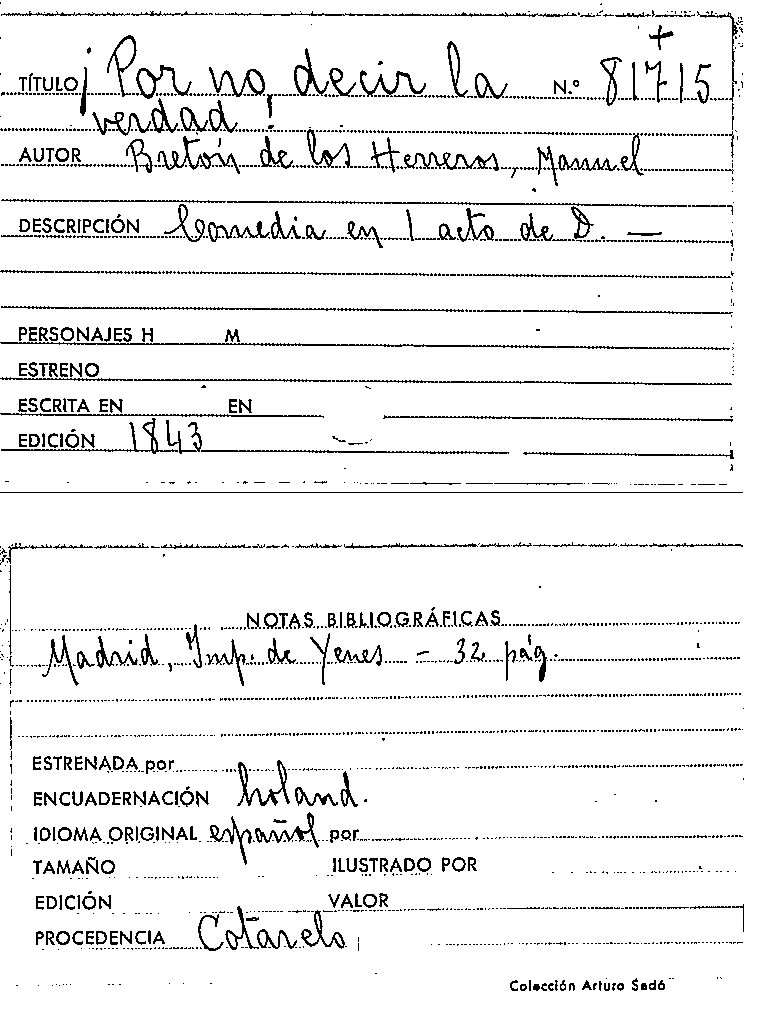 +
TÍTULO ¡Por no decir la N.º 81715
verdad!
AUTOR Bretón de los Herreros, Manuel
DESCRIPCIÓN Comedia en 1 acto de D. —
PERSONAJES H M
ESTRENO
ESCRITA EN EN
EDICIÓN 1843
NOTAS BIBLIOGRÁFICAS
Madrid, Imp. de Yenes – 32 pág.
ESTRENADA por
ENCUADERNACIÓN holand.
IDIOMA ORIGINAL español por
TAMAÑO ILUSTRADO POR
EDICIÓN VALOR
PROCEDENCIA Cotarelo
Colección Arturo Sedó